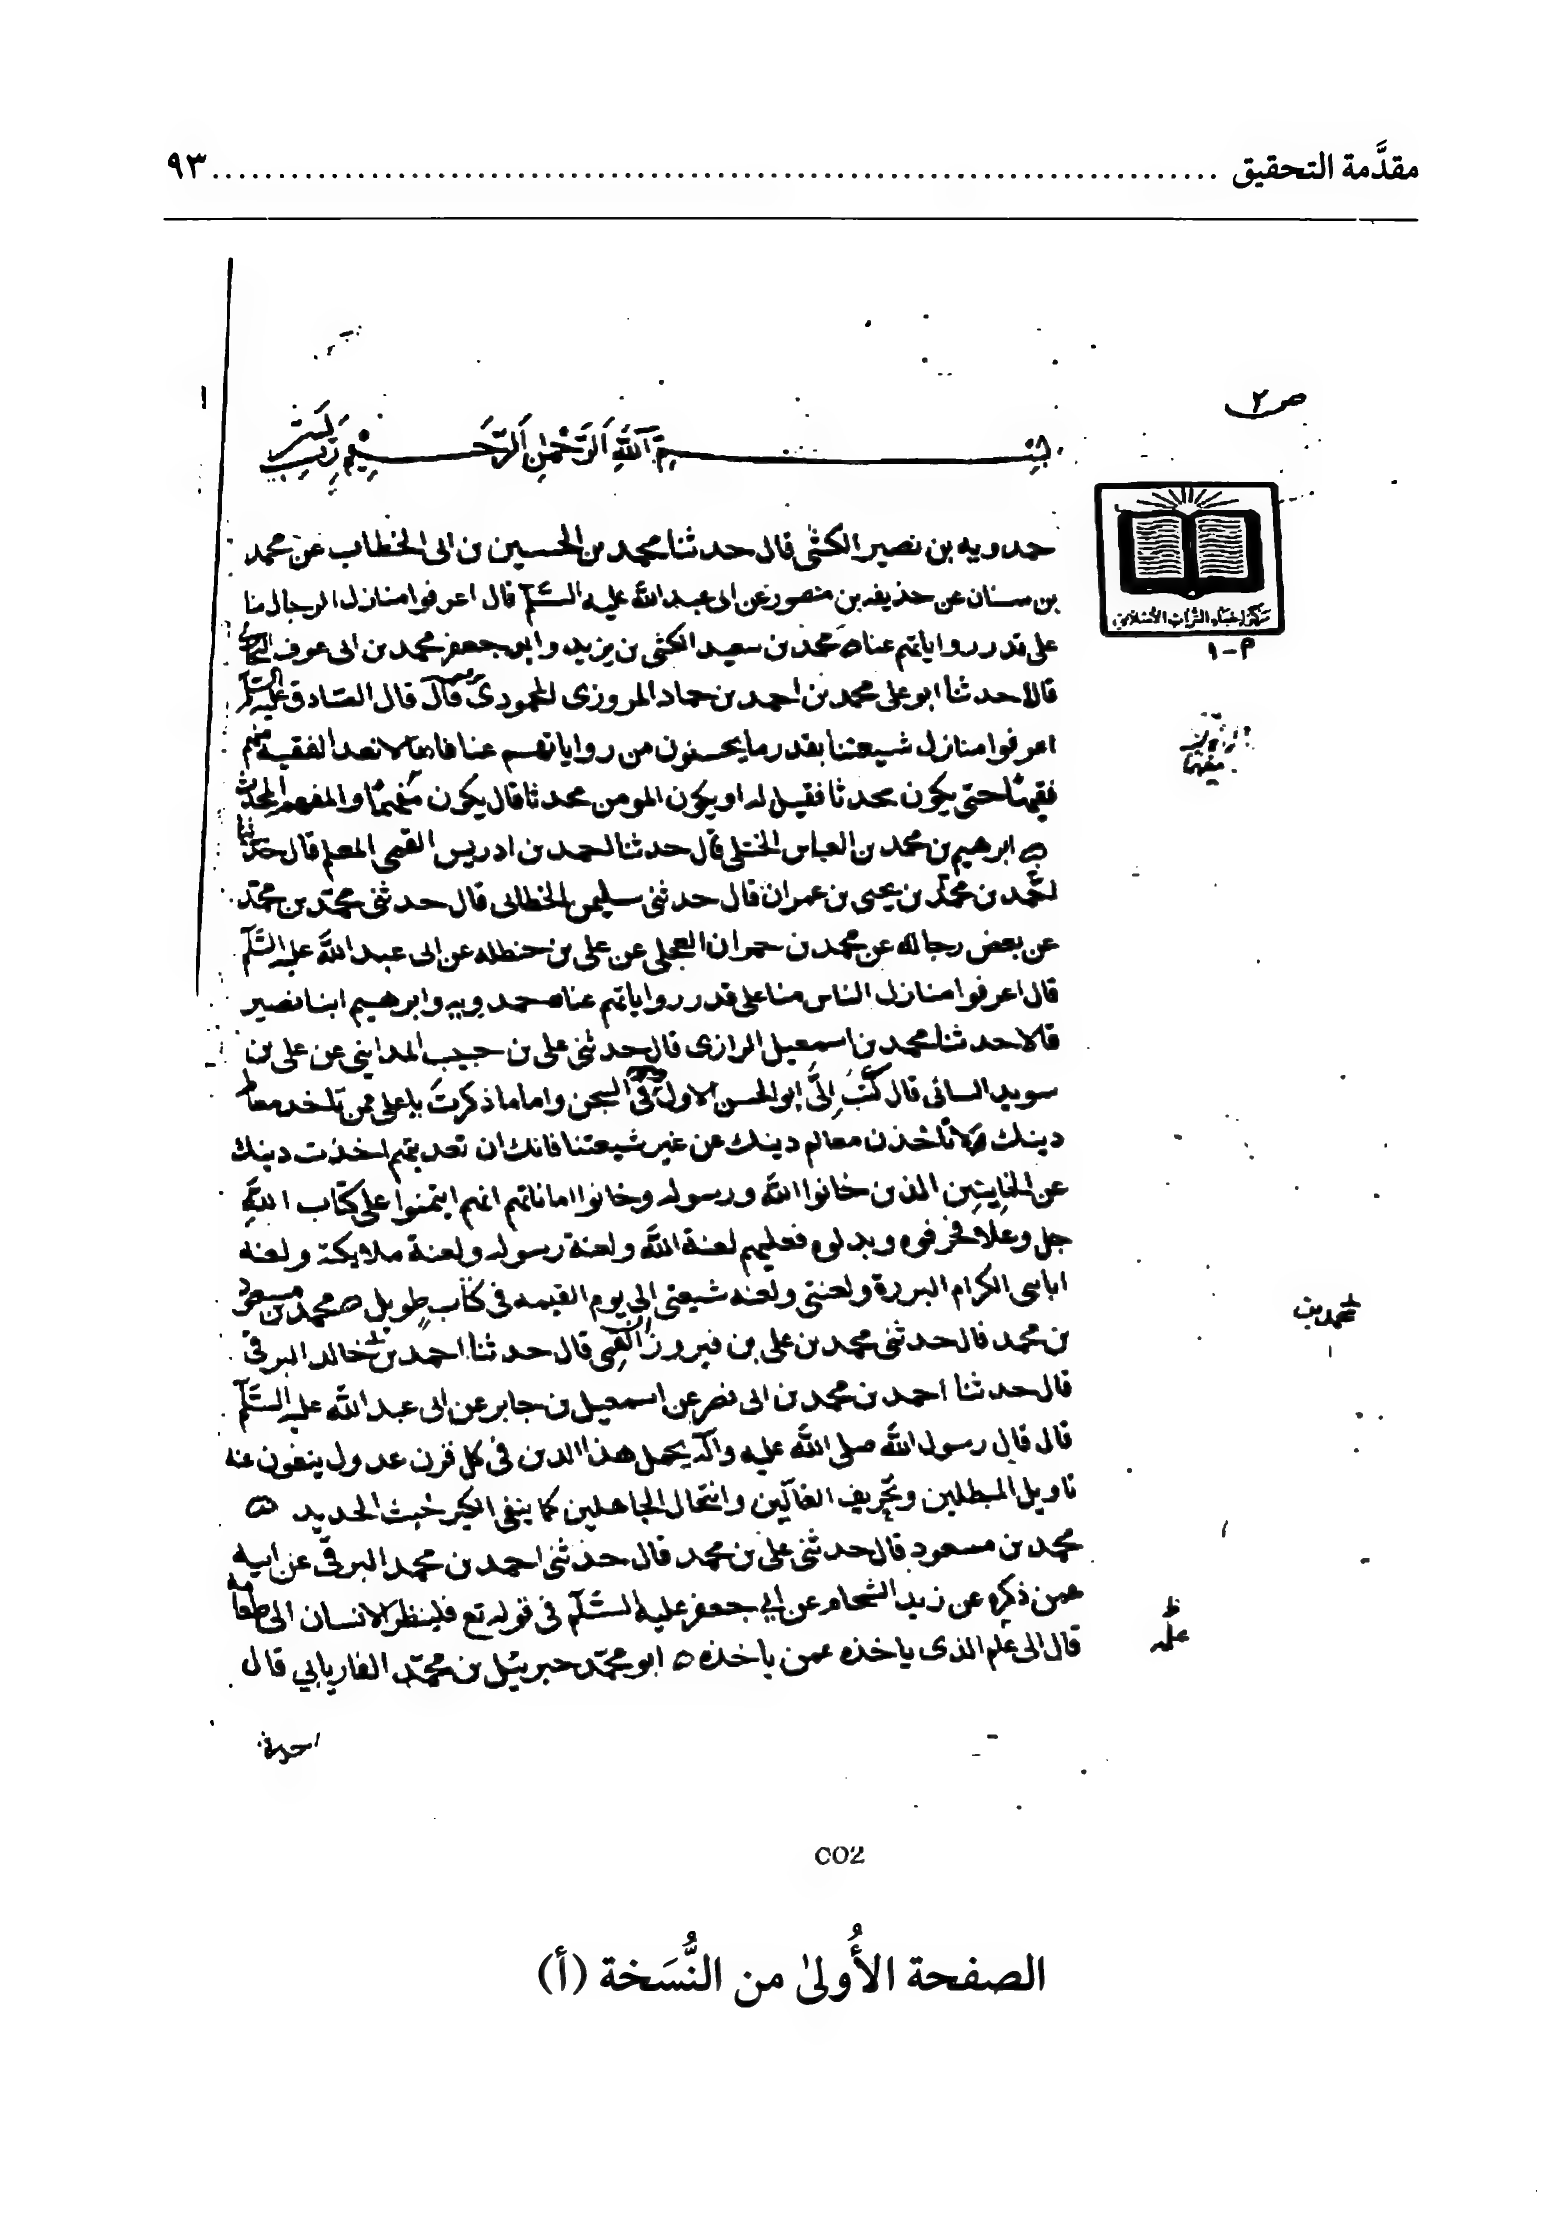 مقدَّمة التحقيق ........................................ ٩٣
ص٢
بسم الله الرحمن الرحيم رب يسر
حمدويه بن نصير الكشى قال حدثنا محمد بن الحسين بن ابى الخطاب عن محمد
مركز احياء التراث الاسلامي
بن سنان عن حذيفه بن منصور عن ابى عبد الله عليه السلم قال اعرفوا منازل الرجال منا
م-١
على قدر رواياتهم عنا ه محمد بن سعيد الكشى بن يزيد وابو جعفر محمد بن ابى عوف
قالا حدثنا ابو على محمد بن احمد بن حماد المروزى المحمودى قال قال الصادق عليه السلم
اعرفوا منازل شيعتنا بقدر ما يحسنون من رواياتهم عنا فانا لا نعد الفقيه منهم
فقيها حتى يكون محدثا فقيل له او يكون المومن محدثا قال يكون مفهما والمفهم المحدث
ه ابرهيم بن محمد بن العباس الختلى قال حدثنا احمد بن ادريس القمى المعلم قال حدثنا
احمد بن محمد بن يحيى بن عمران قال حدثنى سليمن الخطابى قال حدثنى محمد بن محمد
عن بعض رجاله عن محمد بن حمران العجلى عن على بن حنظله عن ابى عبد الله عليه السلم
قال اعرفوا منازل الناس منا على قدر رواياتهم عنا ه حمدويه وابرهيم ابنا نصير
قالا حدثنا محمد بن اسمعيل الرازى قال حدثنى على بن حبيب المداينى عن على بن
سويد السائى قال كتب إلىَّ ابو الحسن الاول وهو فى السجن واما ما ذكرت يا على ممن تاخذ معالم
دينك لا تاخذن معالم دينك عن غير شيعتنا فانك ان تعديتهم اخذت دينك
عن الخاينين الذين خانوا الله ورسوله وخانوا اماناتهم انهم ايتمنوا على كتاب الله
جل وعلا فحرفوه وبدلوه فعليهم لعنة الله ولعنة رسوله ولعنة ملايكته ولعنه
اباىى الكرام البررة ولعنتى ولعنه شيعتى الى يوم القيمه فى كتاب طويل ه محمد بن مسعود
محمد بن
بن محمد قال حدثنى محمد بن على بن فيروزان القمى قال حدثنا احمد بن خالد البرقى
قال حدثنا احمد بن محمد بن ابى نصر عن اسمعيل بن جابر عن ابى عبد الله عليه السلم
قال قال رسول الله صلى الله عليه وآله يحمل هذا الدين فى كل قرن عدول ينفون عنه
تاويل المبطلين وتحريف الغالين وانتحال الجاهلين كما ينفى الكير خبث الحديد ه
محمد بن مسعود قال حدثنى على بن محمد قال حدثنى احمد بن محمد البرقى عن ابيه
عمن ذكره عن زيد الشحام عن ابي جعفر عليه السلم فى قوله تع فلينظر الانسان الى طعامه
قال الى علم الذى ياخذه عمن ياخذه ه ابو محمد جبريئل بن محمد الفاريابي قال
ظ
علمه
002
الصفحة الأُولىٰ من النُّسَخة (أ)